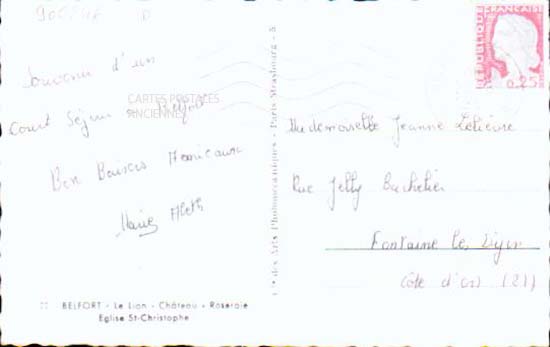 Souvenir d'un
Court Séjour à Belfort
Bon Baisers
Marie
CARTES POSTALES
ANCIENNES
BELFORT - Le Lion - Château - Roseraie
Eglise St-Christophe
Cie des Arts Photomécaniques - Paris-Strasbourg - 8
REPUBLIQUE
FRANCAISE
0,25
Mademoiselle Jeanne Lelièvre
Rue Jelly Bachelier
Fontaine les Dijon
Côte d'Or (21)